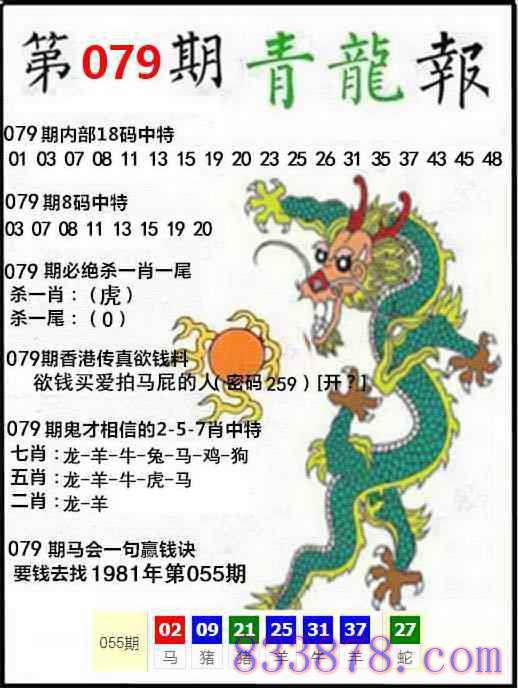 第079期青龍報
079期内部18码中特
01 03 07 08 11 13 15 19 20 23 25 26 31 35 37 43 45 48
079期8码中特
03 07 08 11 13 15 19 20
079期必绝杀一肖一尾
杀一肖：（虎）
杀一尾：（0）
079期香港传真欲钱料
欲钱买爱拍马屁的人(密码259)[开?]
079期鬼才相信的2-5-7肖中特
七肖：龙-羊-牛-兔-马-鸡-狗
五肖：龙-羊-牛-虎-马
二肖：龙-羊
079期马会一句赢钱诀
要钱去找1981年第055期
055期 02 09 21 25 31 37 27
马 猪 猪 羊 牛 羊 蛇
833878.com